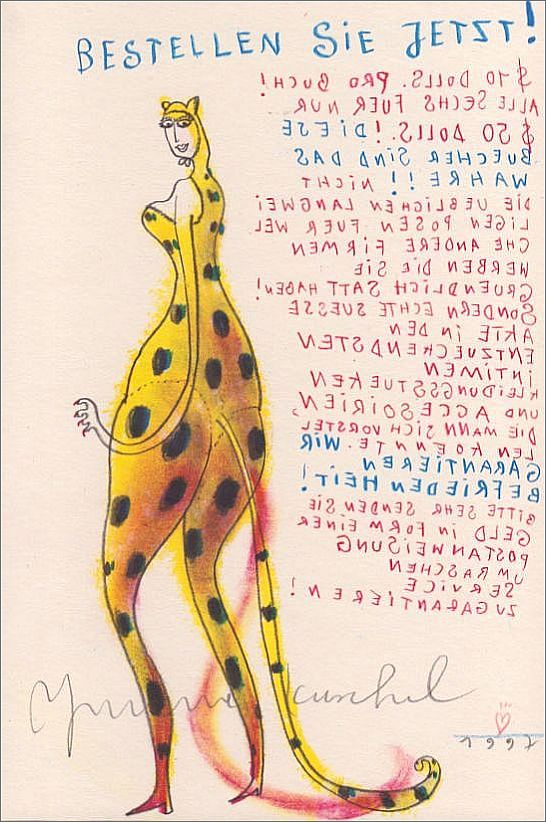 BESTELLEN SIE JETZT!
$ 10 DOLLS. PRO BUCH!
ALLE SECHS FUER NUR
$ 50 DOLLS.! DIESE
BUECHER SIND DAS
WAHRE!! NICHT
DIE UEBLICHEN LANGWEI
LIGEN POSEN FUER WEL
CHE ANDERE FIRMEN
WERBEN DIE SIE
GRUENDLICH SATT HABEN!
SONDERN ECHTE SUESSE
AKTE IN DEN
ENTZUECHENDSTEN
INTIMEN
KLEIDUNGSSTUEKEN
UND ACCESOIRIEN,
DIE MANN SICH VORSTEL
LEN KOENTE. WIR
GARANTIEREN
BEFRIEDENHEIT!
BITTE SEHR SENDEN SIE
GELD IN FORM EINER
POSTANWEISUNG
UM RASCHEN
SERVICE
ZU GARANTIEREN!
Yvonne Kuschel